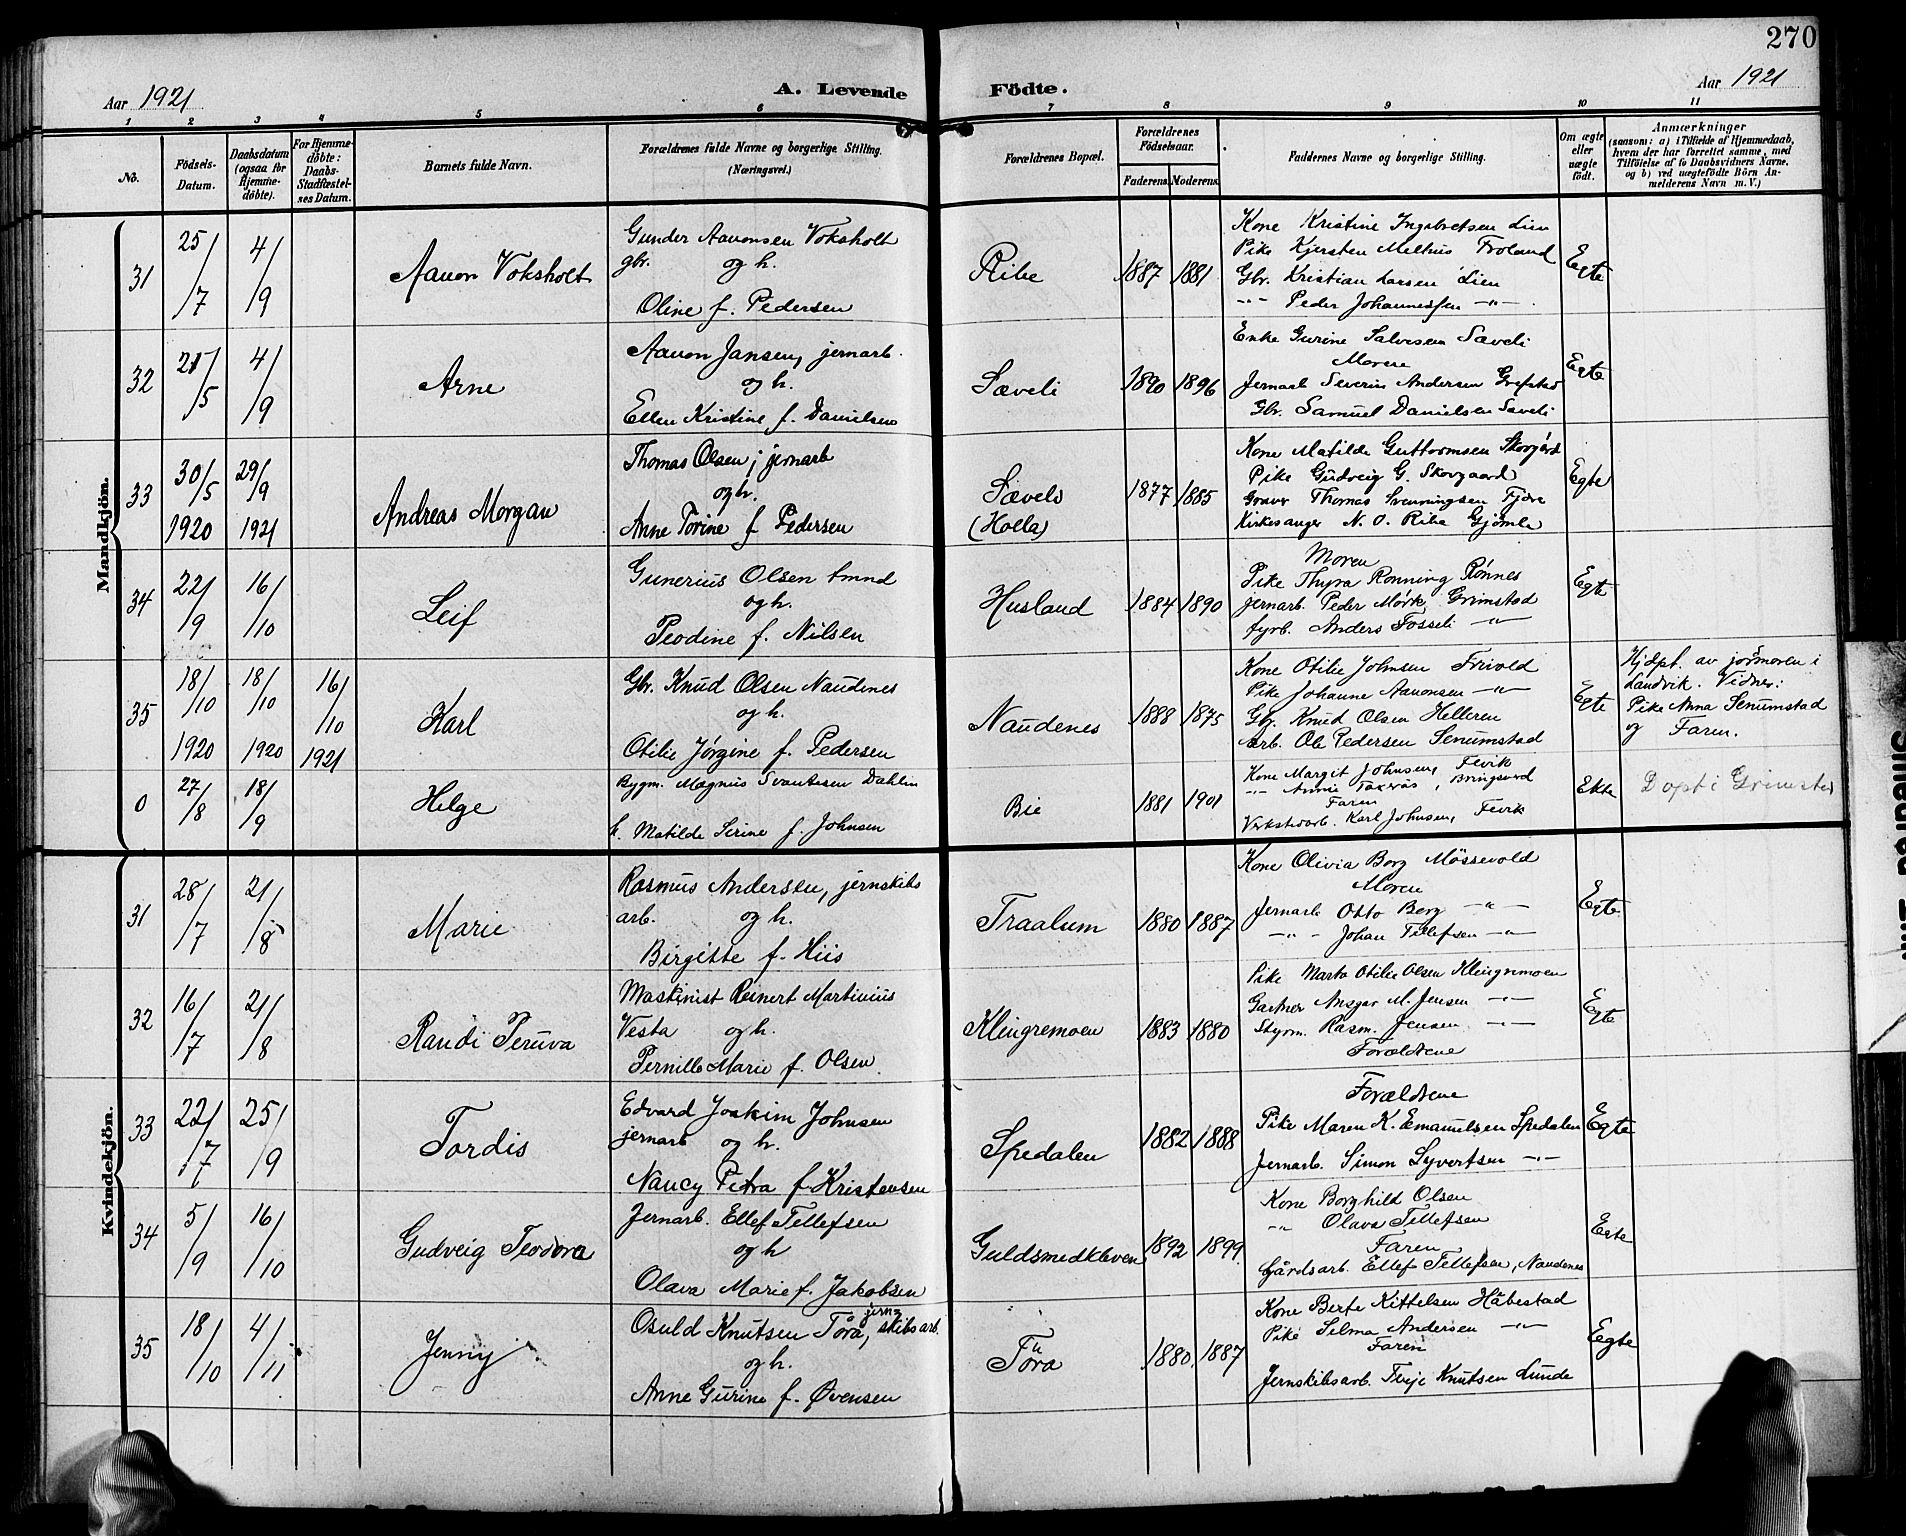 270
Aar 1921
A. Levende Födte.
Aar 1921
1 2 3 4 5 6 7 8 9 10 11
No.
Födsels-
Datum.
Daabsdatum
(ogsaa for
Hjemme-
døbte).
For Hjemme-
døbte:
Daabs-
Stadfæstel-
ses Datum.
Barnets fulde Navn.
Forældrenes fulde Navne og borgerlige Stilling.
(Næringsvei.)
Forældrenes Bopæl.
Forældrenes
Födselsaar.
Faderens. Moderens.
Faddernes Navne og borgerlige Stilling.
Om ægte
eller
uægte
født.
Anmærkninger
(saasom: a) i Tilfælde af Hjemmedaab,
hvem der har forrettet samme, med
Tilföielse af to Daabsvidners Navne,
og b) ved uægtefödte Börn An-
melderens Navn m. V.)
Mandkjön.
31
25/7
4/9
Aavon Voksholt
Gunder Aavonsen Voksholt
gbr. og h.
Oline f. Pedersen
Ribe
1887 1881
Kone Kristine Ingebretsen Lien
Pike Kjersten Melhus Froland
Gbr. Kristian Larsen Lien
-"- Peder Johannessen -"-
Egte
32
21/5
4/9
Arne
Aavon Jansen, jernarb.
og h.
Ellen Kristine f. Danielsen
Sæveli
1890 1896
Enke Gurine Salvesen Sæveli
Moren
Jernarb Severin Andersen Grefstad
Gbr. Samuel Danielsen Sæveli
Egte
33
30/5
1920
29/9
1921
Andreas Morgan
Thomas Olsen, jernarb
og h.
Anne Torine f Pedersen
Sævels
(Holla)
1877 1885
Kone Matilde Guttormsen Skorgård
Pike Gudveig G. Skovgaard
Graver Thomas Svenningsen Fjære
Kirkesanger N. O. Ribe Gjømle
Egte
34
22/9
16/10
Leif
Gunerius Olsen tmnd
og h.
Peodine f. Nilsen
Husland
1884 1890
Moren
Pike Thyra Rønning Rønnes
jernarb. Peder Mørk, Grimstad
fyrb. Anders Fosseli -"-
Egte
35
18/10
1920
18/10
1920
16/10
1921
Karl
Gbr. Knud Olsen Naudenes
og h.
Otilie Jørgine f. Pedersen
Naudenes
1888 1875
Kone Otilie Johnsen Frivold
Pike Johanne Aavonsen -"-
Gbr. Knud Olsen Helleren
Arb. Ole Pedersen Senumstad
Egte
Hjdpt. av jormoren i
Landvik. Vidner:
Pike Anna Senumstad
og Faren.
0
27/8
18/9
Helge
Bygm. Magnus Svantesen Dahlin
h. Matilde Sirine f. Johnsen
Bie
1881 1901
Kone Margit Johnsen, Fevik
-"- Annie , Bringsverd
Faren
Verkstedarb. Karl Johnsen, Fevik
Ekte
Døpt i Grimstad
Kvindekjön.
31
28/7
21/8
Marie
Rasmus Andersen, jernskibs
arb. og h.
Birgitte f. Hiis
Traalum
1880 1887
Kone Olivia Borg Møssevold
Moren
Jernarb Otto Berg -"-
-"- Johan Tellefsen -"-
Egte
32
16/7
21/8
Randi Peruva
Maskinist Reinert Martinius
Vesta og h.
Pernille Marie f. Olsen.
Klingremoen
1883 1880
Pike Marta Otilie Olsen Klingremoen
Gartner Ansgar M. Jensen -"-
Styrm. Rasm. Jensen -"-
Forældrene
Egte
33
22/7
25/9
Tordis
Edvard Joakim Johnsen
jernarb og h.
Nancy Petra f. Kristensen
Spedalen
1882 1888
Forældrene
Pike Maren K. Emanuelsen Spedalen
Jernarb. Simon Syvertsen -"-
Egte
34
5/9
16/10
Gudveig Teodora
Jernarb. Ellef Tellefsen
og h
Olava Marie f. Jakobsen
Guldsmedkleven
1892 1899
Kone Borghild Olsen
-"- Olava Tellefsen
Faren
Gårdsarb. Ellef Tellefsen, Naudenes
Egte
35
18/10
4/11
Jenny
Osuld Knutsen Tora, jern
skibsarb.
og h.
Anne Gurine f. Øvensen
Tora
1880 1887
Kone Berte Kittelsen Håbestad
Pike Selma Andersen -"-
Faren
Jernskibsarb. Terje Knutsen Lunde
Egte